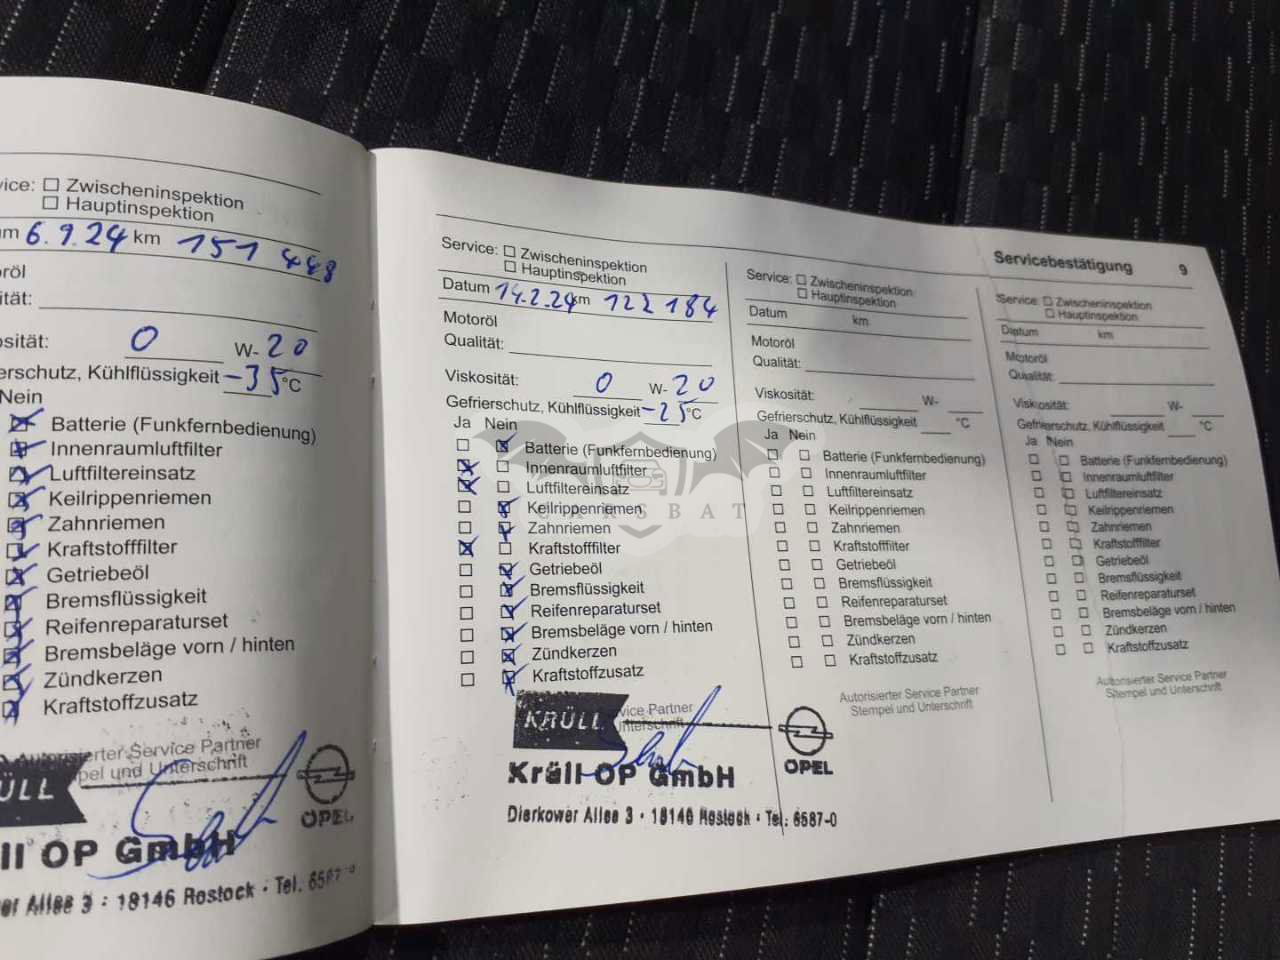 vice: ☐ Zwischeninspektion
☐ Hauptinspektion
6.9.24 km 151 448
W- 20
0
erschutz, Kühlflüssigkeit -35 °C
Nein
Batterie (Funkfernbedienung)
Innenraumluftfilter
Luftfiltereinsatz
Keilrippenriemen
Zahnriemen
Kraftstofffilter
Getriebeöl
Bremsflüssigkeit
Reifenreparaturset
Bremsbeläge vorn / hinten
Zündkerzen
Kraftstoffzusatz
Autorisierter Service Partner
pel und Unterschrift
ÜLL
OPEL
ll OP GmbH
er Allee 3 · 18146 Rostock · Tel. 6587-0
Service: ☐ Zwischeninspektion
☐ Hauptinspektion
Datum 14.2.24 km 122 184
Motoröl
Qualität:
Viskosität: 0 W- 20
Gefrierschutz, Kühlflüssigkeit -25 °C
Ja Nein
Batterie (Funkfernbedienung)
Innenraumluftfilter
Luftfiltereinsatz
Keilrippenriemen
Zahnriemen
Kraftstofffilter
Getriebeöl
Bremsflüssigkeit
Reifenreparaturset
Bremsbeläge vorn / hinten
Zündkerzen
Kraftstoffzusatz
vice Partner
Unterschrift
KRÜLL
OPEL
Krüll OP GmbH
Dierkower Allee 3 · 18146 Rostock · Tel. 6587-0
CARSBAT
Service: ☐ Zwischeninspektion
☐ Hauptinspektion
Datum km
Motoröl
Qualität:
Viskosität: W-
Gefrierschutz, Kühlflüssigkeit °C
Ja Nein
Batterie (Funkfernbedienung)
Innenraumluftfilter
Luftfiltereinsatz
Keilrippenriemen
Zahnriemen
Kraftstofffilter
Getriebeöl
Bremsflüssigkeit
Reifenreparaturset
Bremsbeläge vorn / hinten
Zündkerzen
Kraftstoffzusatz
Autorisierter Service Partner
Stempel und Unterschrift
Servicebestätigung 9
Service: ☐ Zwischeninspektion
☐ Hauptinspektion
Datum km
Motoröl
Qualität:
Viskosität: W-
Gefrierschutz, Kühlflüssigkeit °C
Ja Nein
Batterie (Funkfernbedienung)
Innenraumluftfilter
Luftfiltereinsatz
Keilrippenriemen
Zahnriemen
Kraftstofffilter
Getriebeöl
Bremsflüssigkeit
Reifenreparaturset
Bremsbeläge vorn / hinten
Zündkerzen
Kraftstoffzusatz
Autorisierter Service Partner
Stempel und Unterschrift